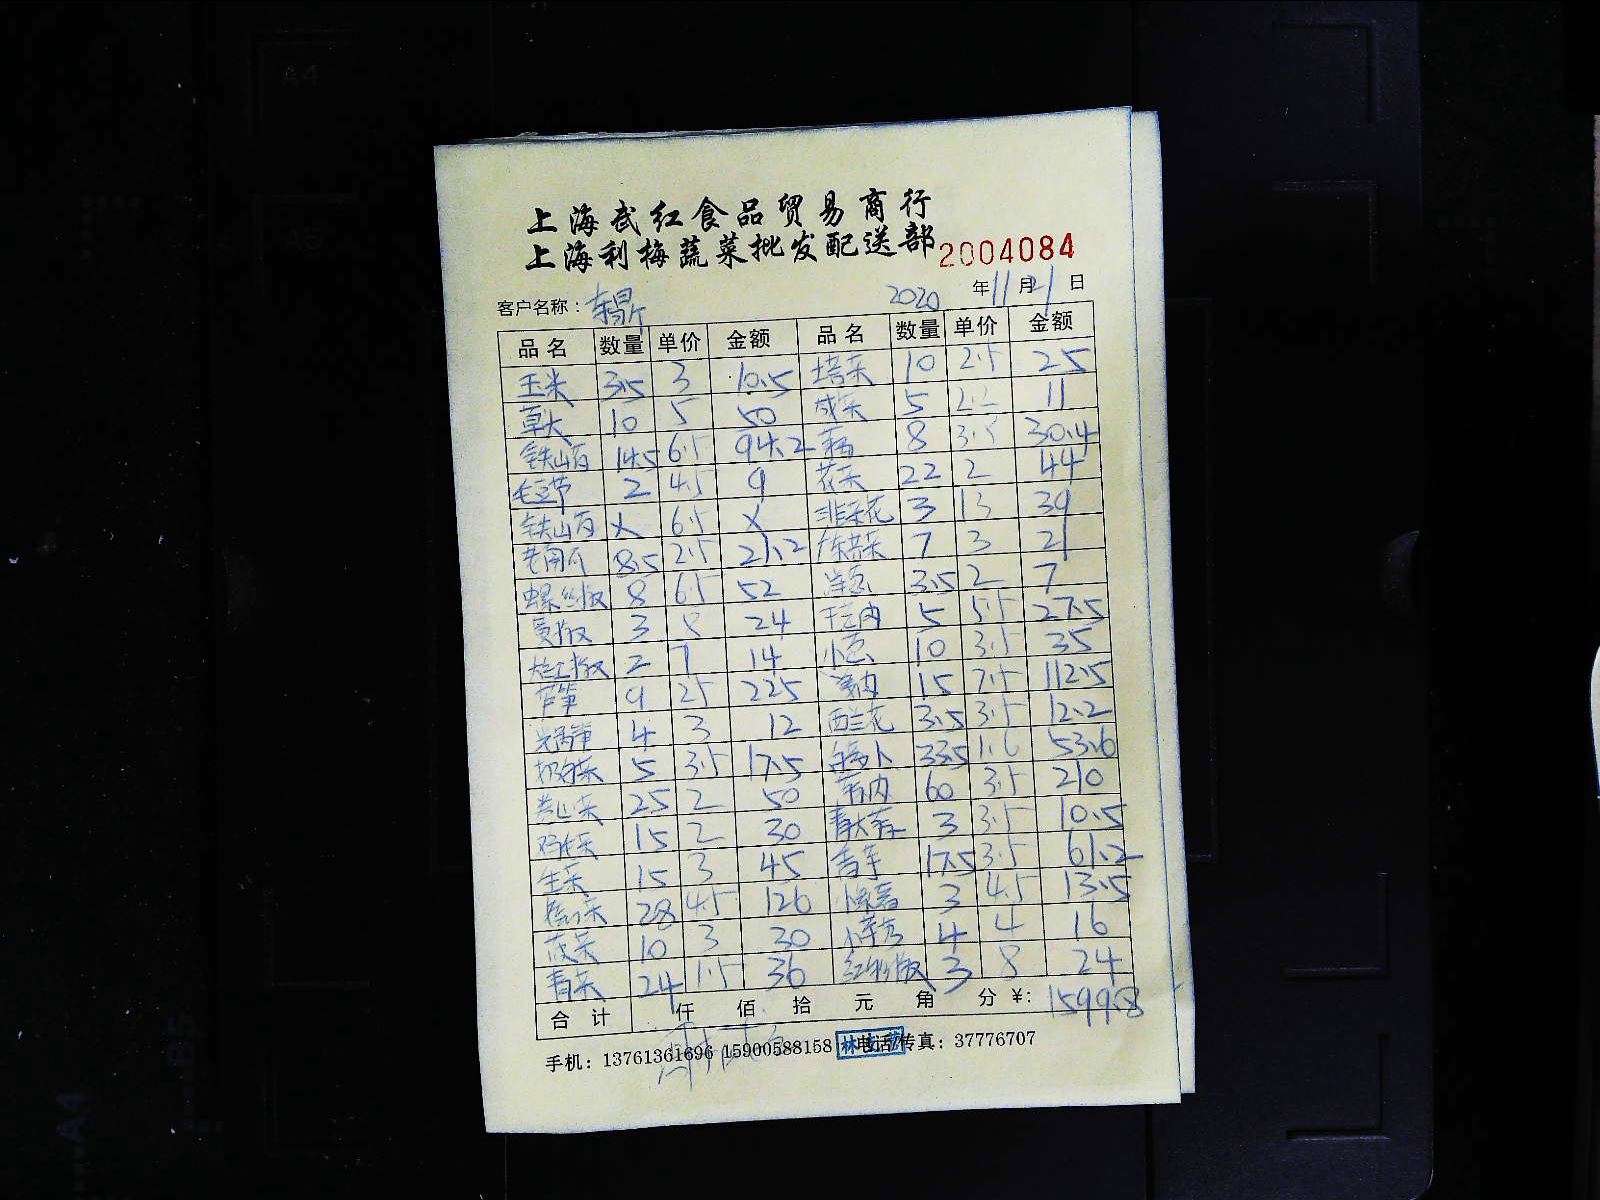 上海武红食品贸易商行
上海利梅蔬菜批发配送部 2004084
客户名称： 2020 年 11 月 21 日
品名 数量 单价 金额 品名 数量 单价 金额
玉米 3.5 3 10.5 塔菜 10 2.5 25
草大 10 5 50 咸菜 5 2.2 11
铁山药 14.5 6.5 94.2 8 3.8 30.4
毛豆节 2 4.5 9 花菜 22 2 44
铁山药 X 6.5 X 韭菜花 3 13 39
老南瓜 8.5 2.5 21.2 7 3 21
螺丝椒 8 6.5 52 洋葱 3.5 2 7
3 8 24 5 5.5 27.5
2 7 14 小葱 10 3.5 35
芦笋 9 25 225 15 7.5 112.5
4 3 12 西兰花 3.5 3.5 12.2
奶白菜 5 3.5 17.5 白萝卜 33.5 1.6 53.6
卷心菜 25 2 50 60 3.5 210
鸡毛菜 15 2 30 3 3.5 10.5
生菜 15 3 45 香芋 17.5 3.5 61.2
28 4.5 126 3 4.5 13.5
菠菜 10 3 30 4 4 16
青菜 24 1.5 36 3 8 24
合计 仟 佰 拾 元 角 分 ¥: 1599.8
手机：13761361696 15900588158 电话/传真：37776707